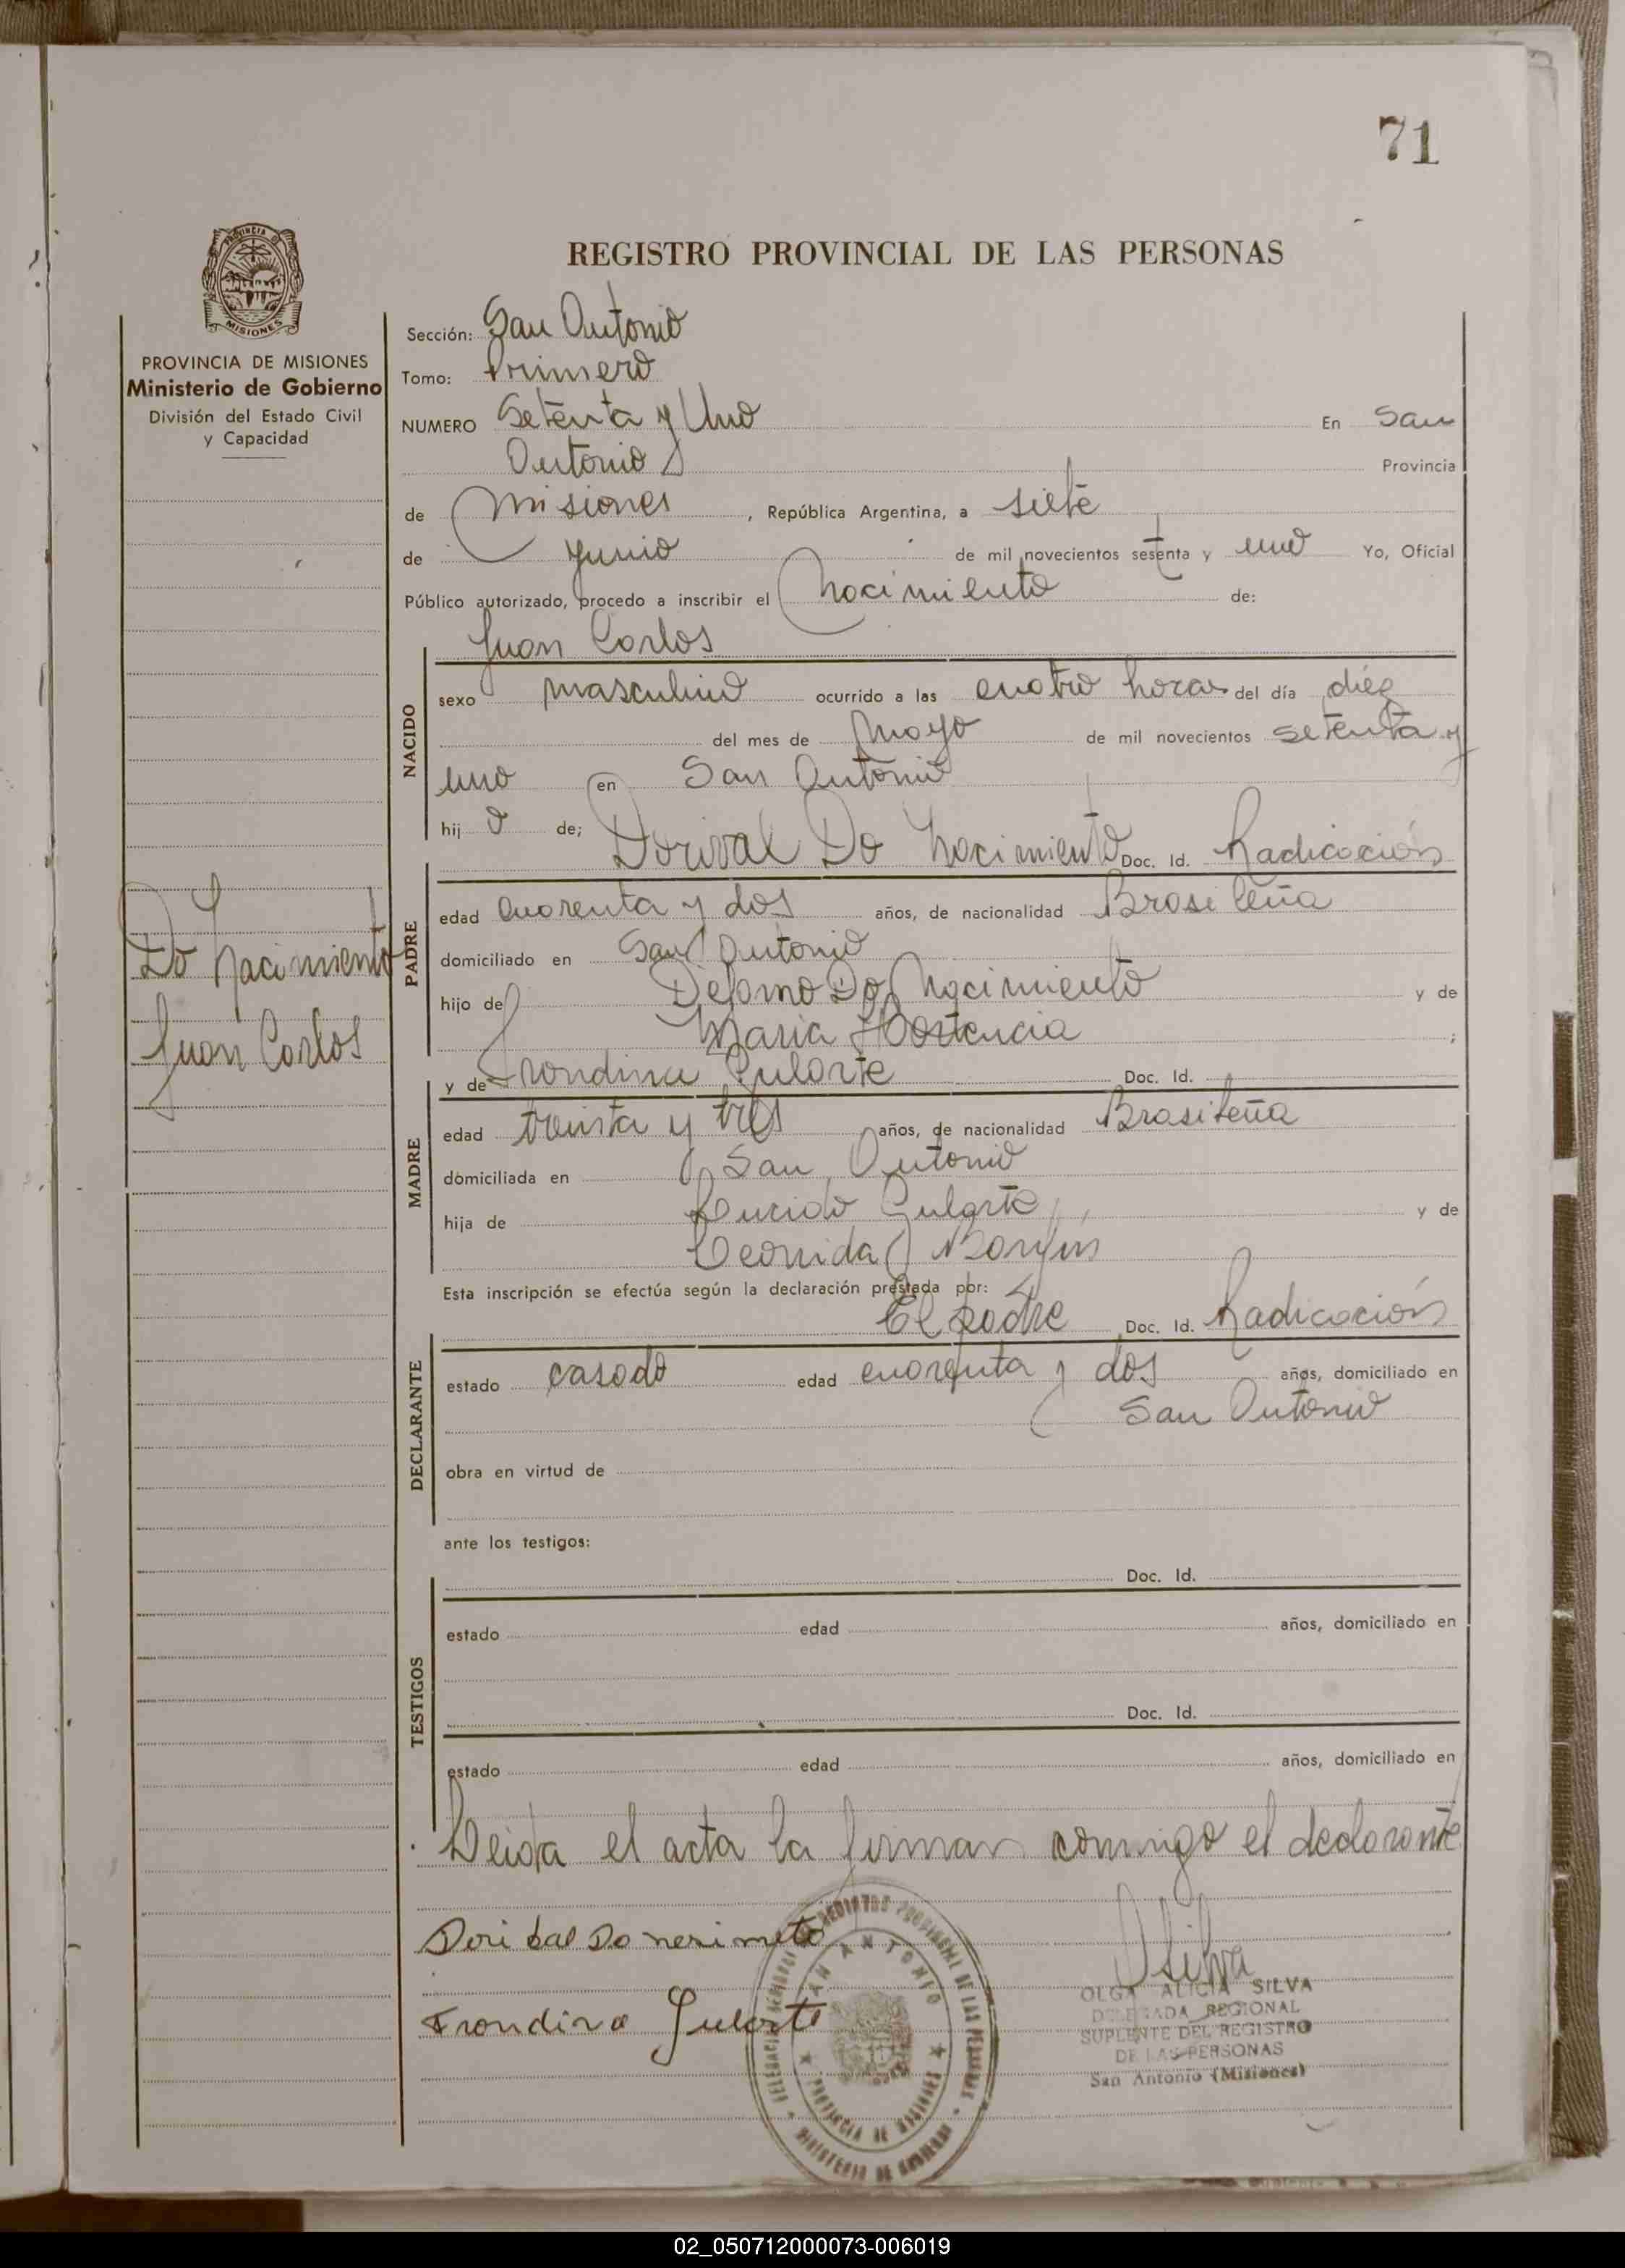 71
PROVINCIA DE
MISIONES
PROVINCIA DE MISIONES
Ministerio de Gobierno
División del Estado Civil
y Capacidad
REGISTRO PROVINCIAL DE LAS PERSONAS
Sección: San Antonio
Tomo: Primero
NUMERO Setenta y Uno En San
Antonio Provincia
de Misiones, República Argentina, a siete
de Junio de mil novecientos setenta y uno Yo, Oficial
Público autorizado, procedo a inscribir el Nacimiento de:
Juan Carlos
NACIDO
sexo masculino ocurrido a las cuatro horas del día diéz
del mes de Mayo de mil novecientos setenta y
uno en San Antonio
hijo de; Dorival Do Nacimiento Doc. Id. Radicación
PADRE
edad cuarenta y dos años, de nacionalidad Brasileña
domiciliado en San Antonio
hijo de Do Nacimiento y de
Maria Hortencia ;
y de Frondina Gularte Doc. Id.
MADRE
edad treinta y tres años, de nacionalidad Brasileña
domiciliada en San Antonio
hija de Lucido Gularte y de
Leonida
Esta inscripción se efectúa según la declaración prestada por:
El padre Doc. Id. Radicación
DECLARANTE
estado casado edad cuarenta y dos años, domiciliado en
San Antonio
obra en virtud de
ante los testigos:
Doc. Id.
TESTIGOS
estado edad años, domiciliado en
Doc. Id.
estado edad años, domiciliado en
Leida el acta la firman conmigo el declarante
Do Nacimiento
Juan Carlos
Doribal Do nesimeto
Frondina Gularte
SAN ANTONIO
PROVINCIA DE MISIONES
MINISTERIO DE GOBIERNO
OSilva
OLGA ALICIA SILVA
DELEGADA REGIONAL
SUPLENTE DEL REGISTRO
DE LAS PERSONAS
San Antonio (Misiones)
02_050712000073-006019